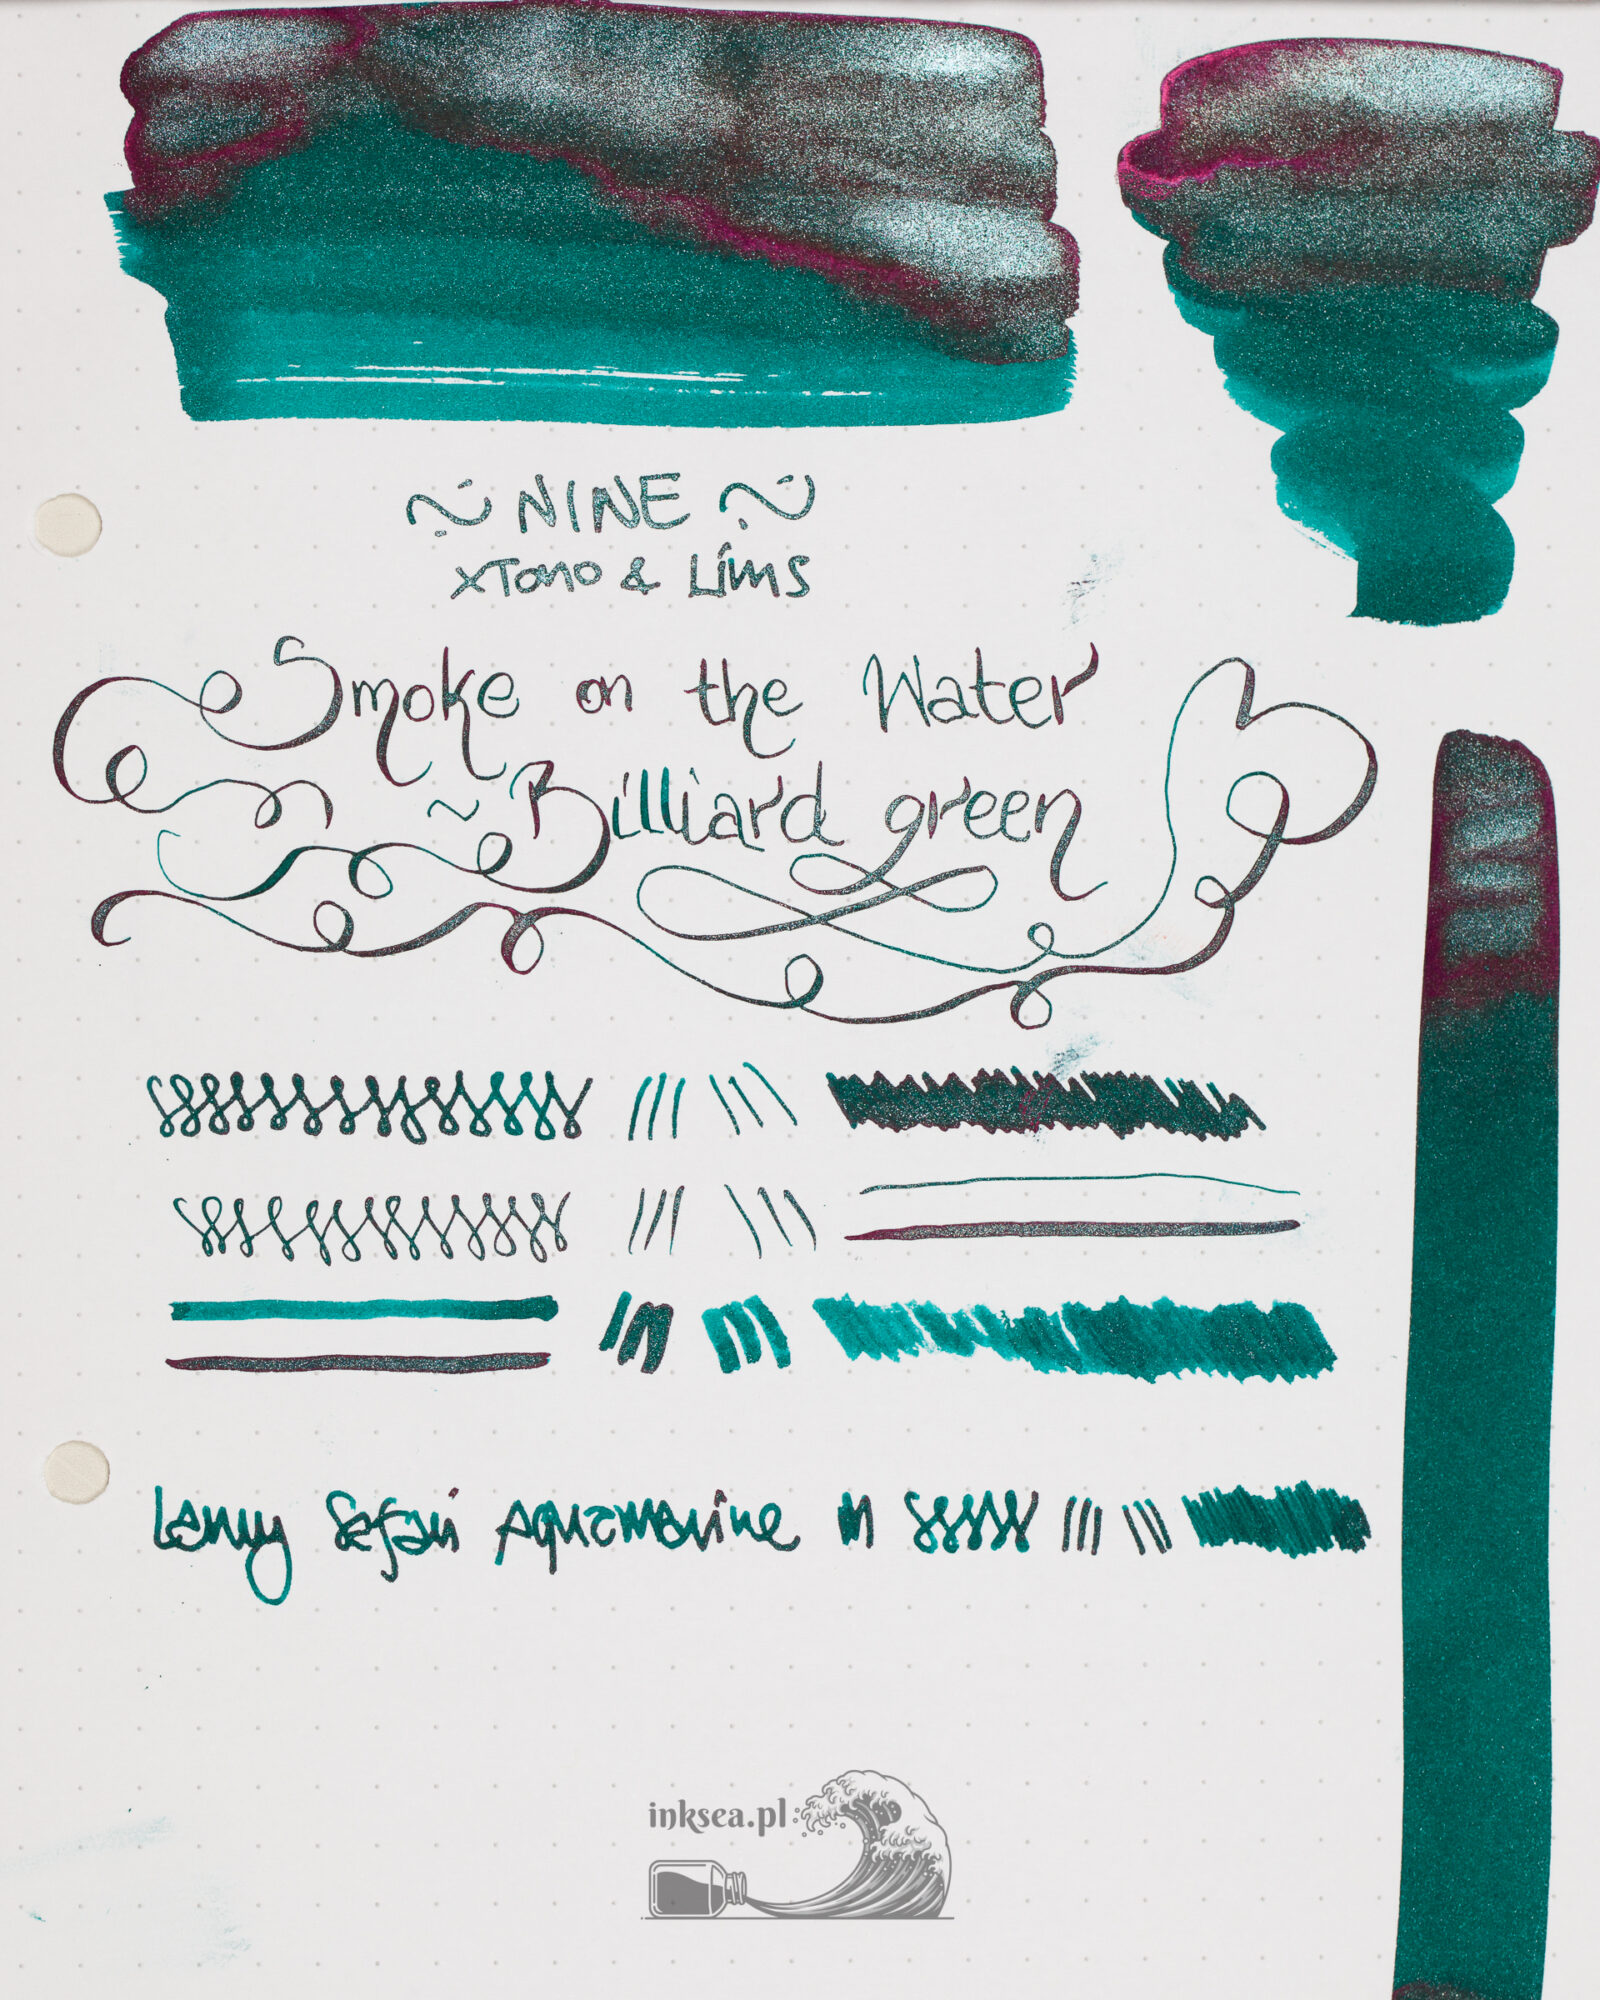 ~ NINE ~
xTono & Lims
Smoke on the Water
~ Billiard green
Lamy Safari Aquamarine M
inksea.pl